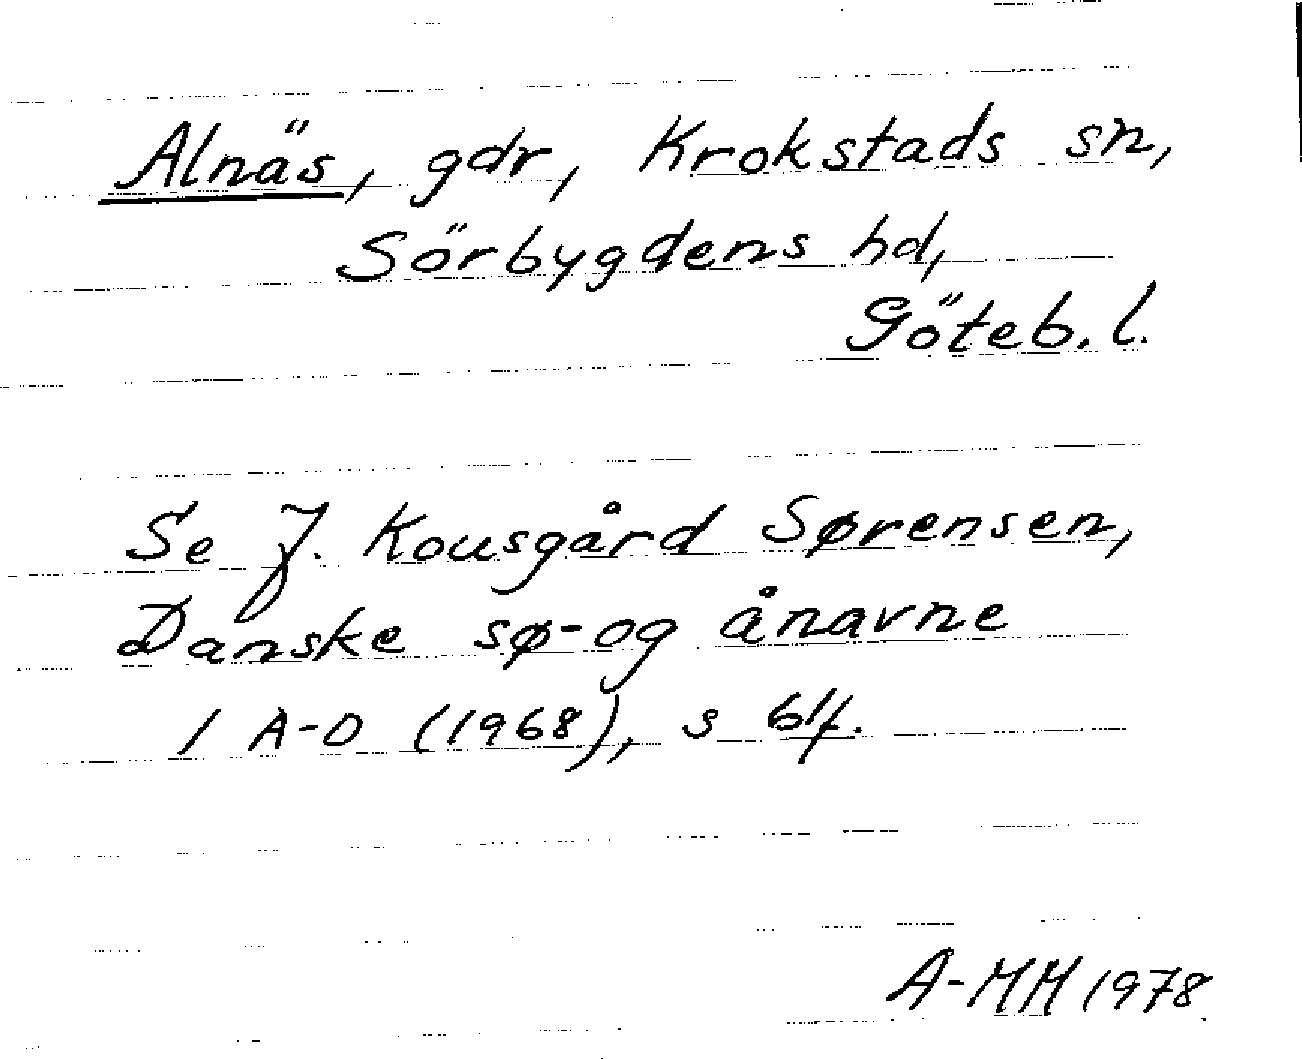 Alnäs, gdr, Krokstads sn,
Sörbygdens hd,
Göteb. l.
Se J. Kousgård Sørensen,
Danske sø- og ånavne
1 A-D (1968), s 61f.
A-MM 1978